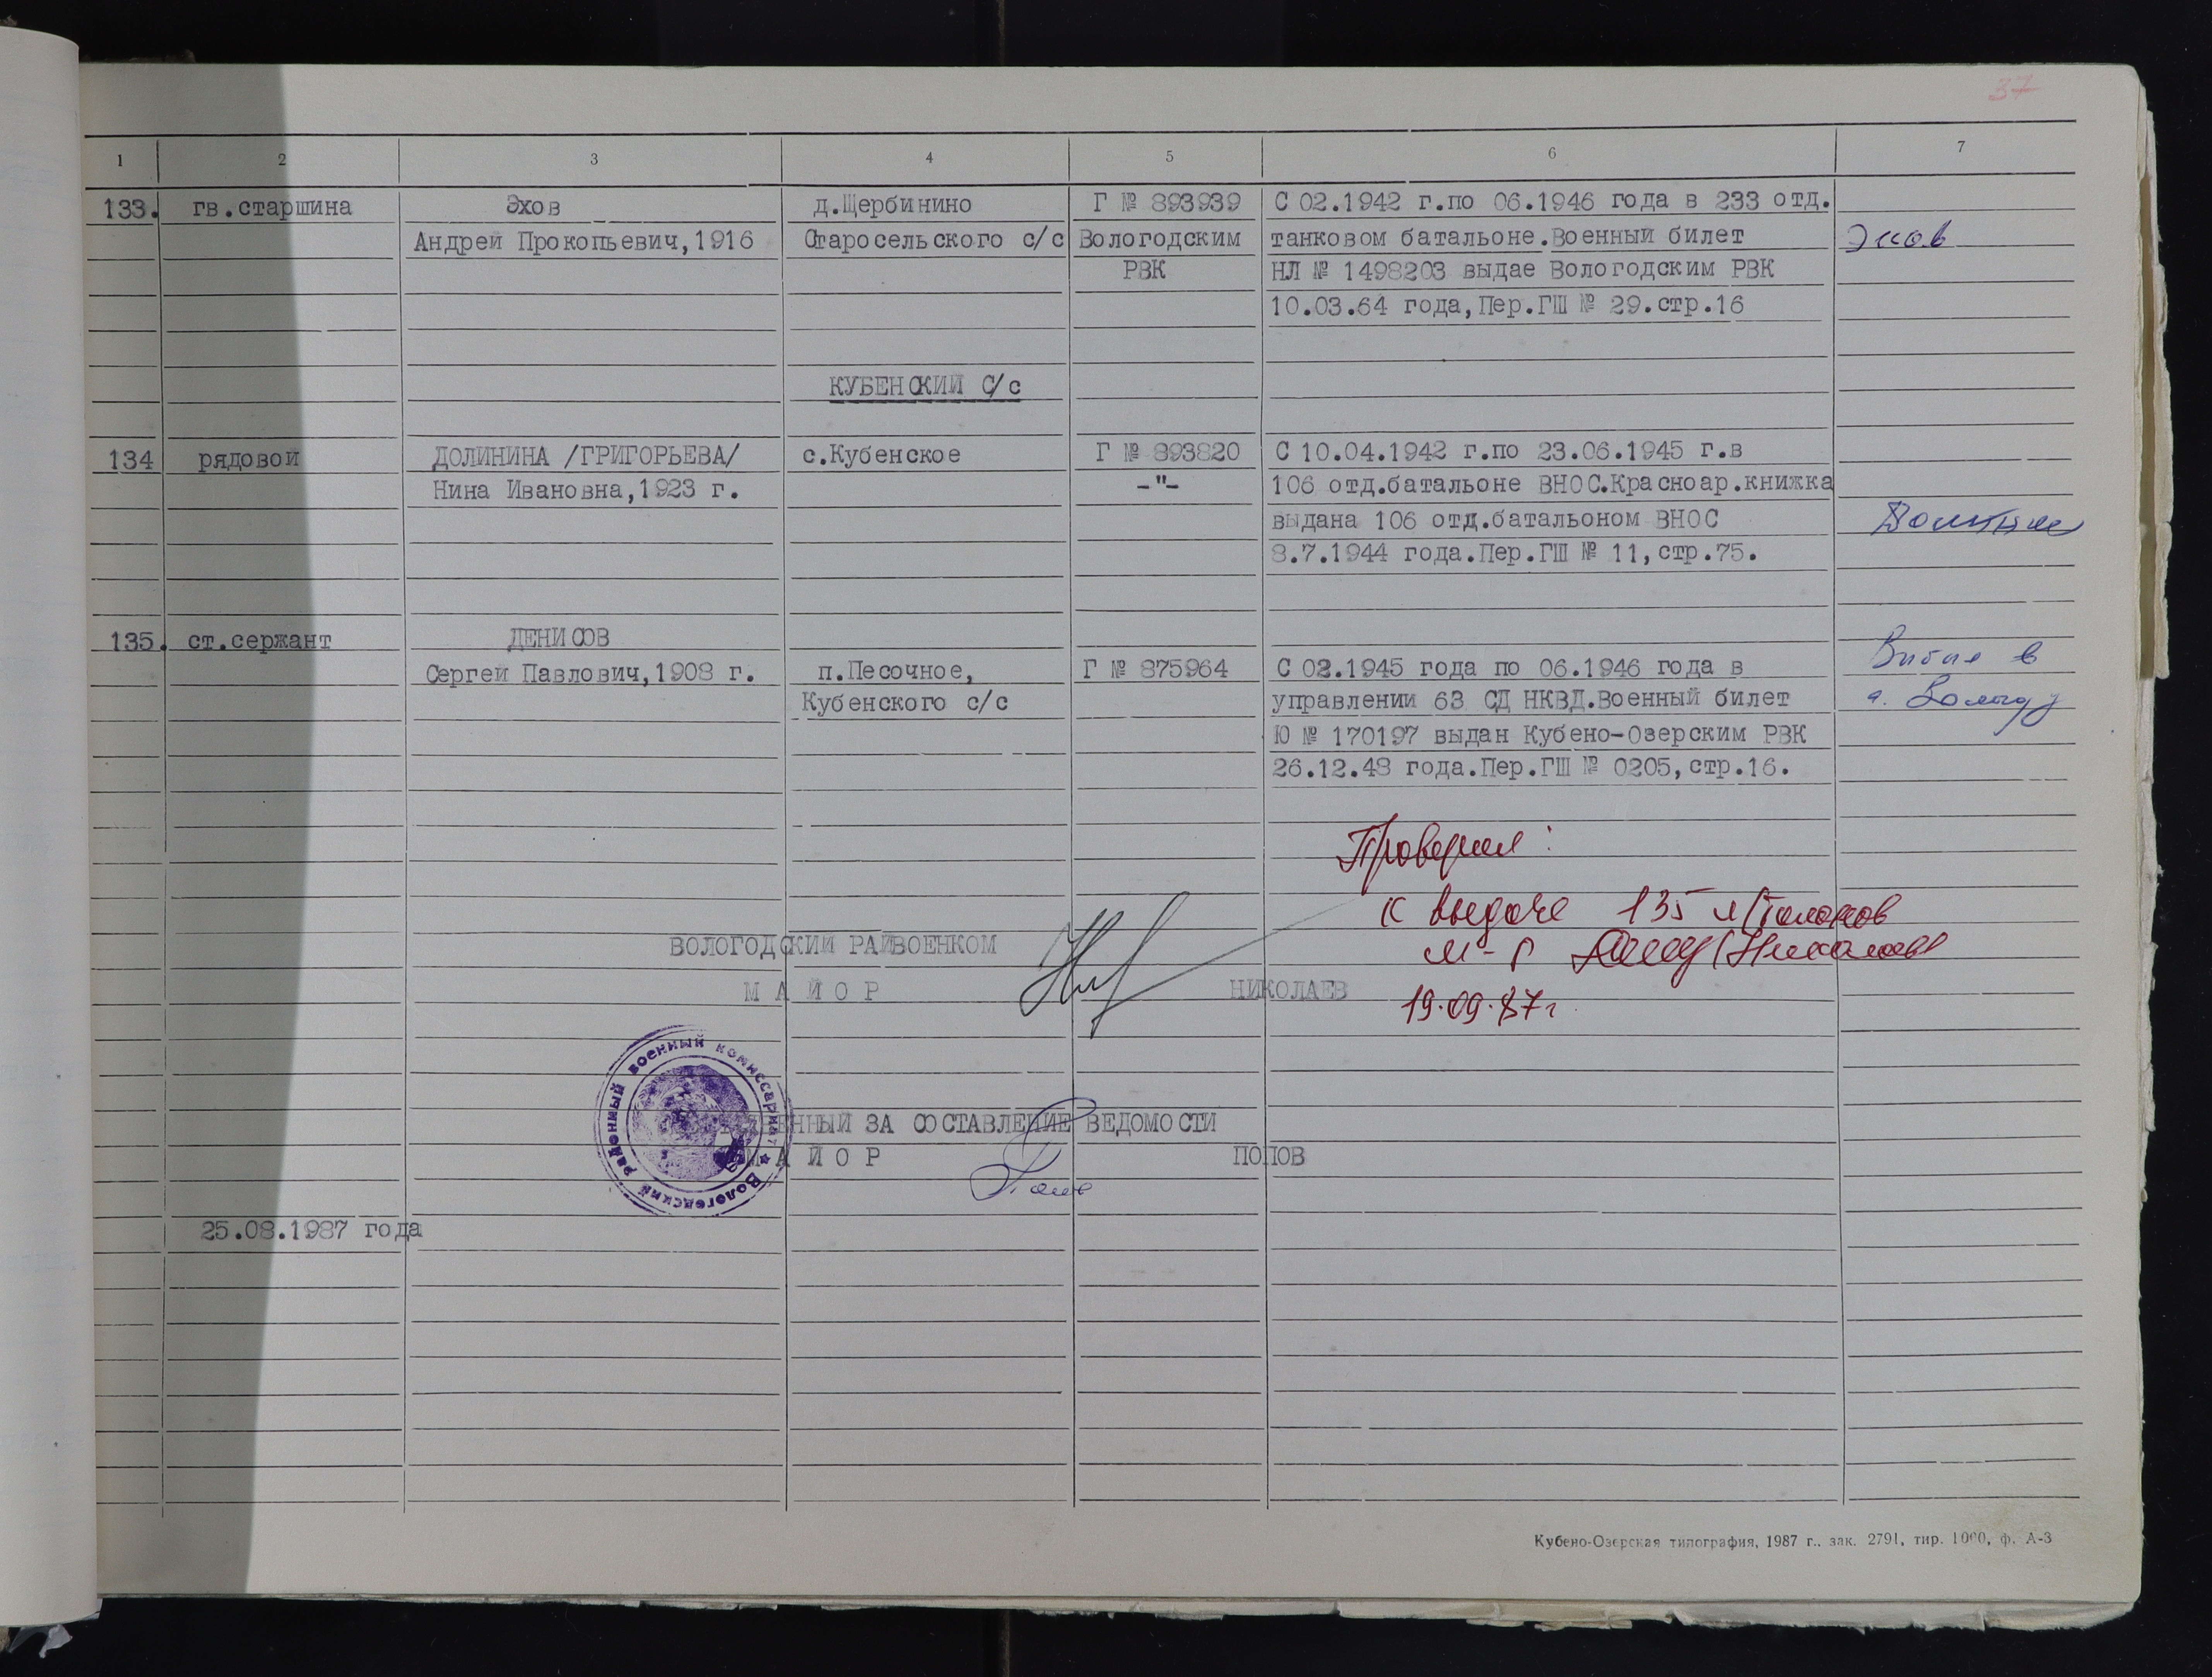 37
1 2 3 4 5 6 7
133. гв.старшина Эхов д.Щербинино Г № 893939 С 02.1942 г.по 06.1946 года в 233 отд.
Андрей Прокопьевич,1916 Старосельского с/с Вологодским танковом батальоне.Военный билет Эхов
РВК НЛ № 1498203 выдае Вологодским РВК
10.03.64 года,Пер.ГШ № 29.стр.16
КУБЕНСКИЙ С/с
134 рядовой ДОЛИНИНА /ГРИГОРЬЕВА/ с.Кубенское Г № 893820 С 10.04.1942 г.по 23.06.1945 г.в
Нина Ивановна,1923 г. -"- 106 отд.батальоне ВНОС.Красноар.книжка
выдана 106 отд.батальоном ВНОС
8.7.1944 года.Пер.ГШ № 11,стр.75.
135. ст.сержант ДЕНИСОВ
Сергей Павлович,1908 г. п.Песочное, Г № 875964 С 02.1945 года по 06.1946 года в Выбыл в
Кубенского с/с управлении 63 СД НКВД.Военный билет г. Вологду
Ю № 170197 выдан Кубено-Озерским РВК
26.12.48 года.Пер.ГШ № 0205,стр.16.
Проверил:
к выдаче 135 талонов
ВОЛОГОДСКИЙ РАЙВОЕНКОМ
м-р Николаев
МАЙОР НИКОЛАЕВ
19.09.87г.
Вологодский районный военный комиссариат
ЕННЫЙ ЗА СОСТАВЛЕНИЕ ВЕДОМОСТИ
МАЙОР ПОПОВ
25.08.1987 года
Кубено-Озерская типография, 1987 г., зак. 2791, тир. 1000, ф. А-3